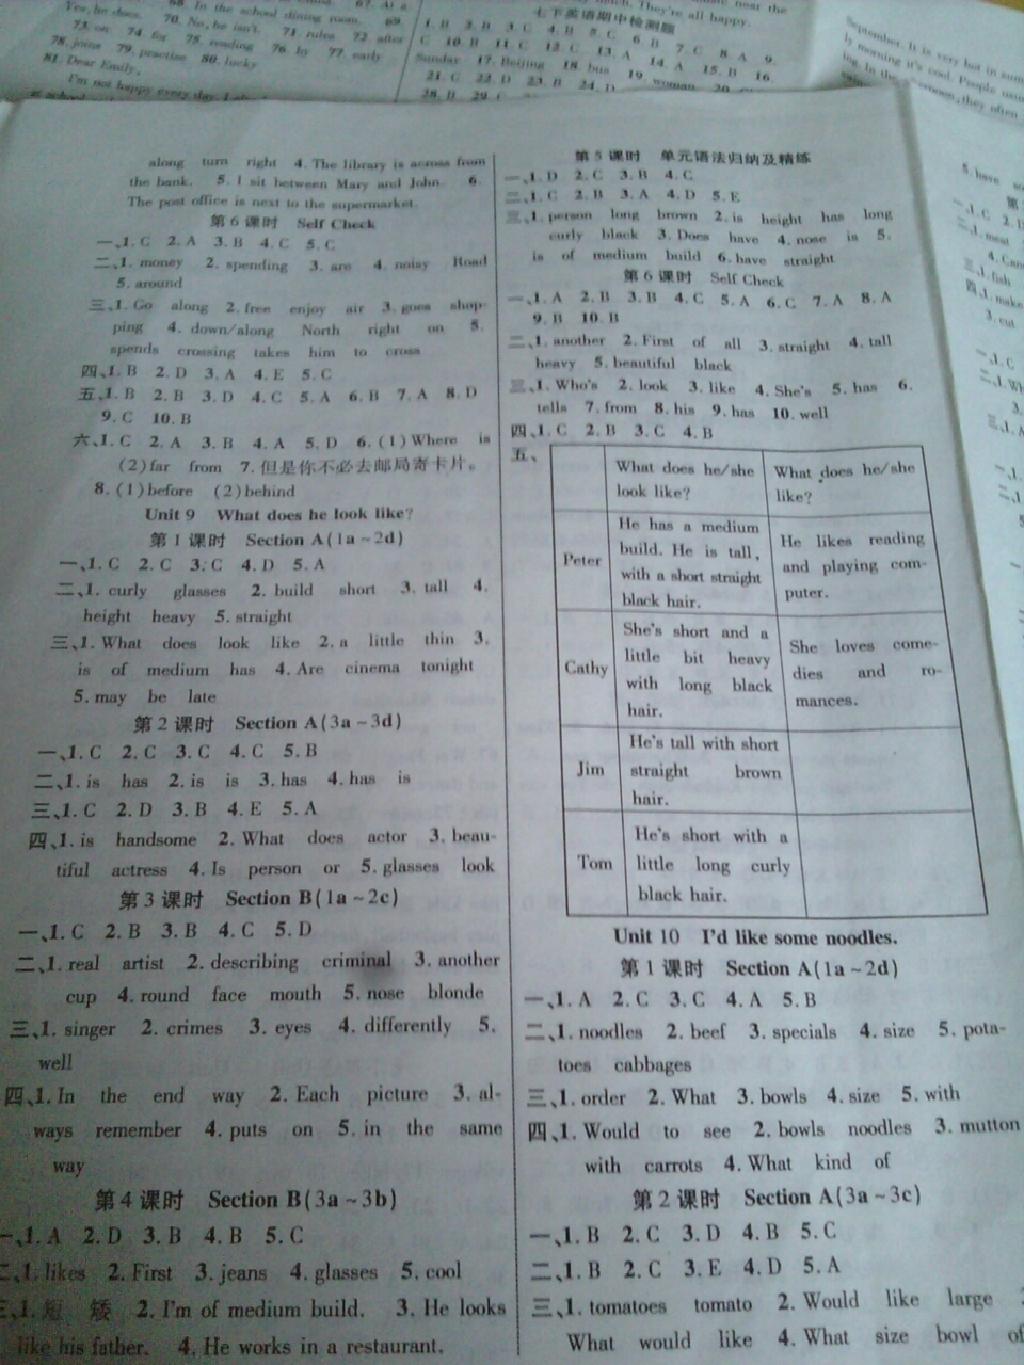 Yes, he does. 70. No, he isn't. 71. rules 72. after
73. on 74. for 75. reading 76. by 77. early
78. joins 79. practise 80. lucky
81. Dear Emily,
I'm not happy every day.
They're all happy.
七下英语期中检测题
Sunday 17. Beijing 18. bus 19. woman
21. C 22. D 23. B 24. D
along turn right 4. The library is across from
the bank. 5. I sit between Mary and John. 6.
The post office is next to the supermarket.
第6课时 Self Check
一、1. C 2. A 3. B 4. C 5. C
二、1. money 2. spending 3. are 4. noisy Road
5. around
三、1. Go along 2. free enjoy air 3. goes shop-
ping 4. down/along North right on 5.
spends crossing takes him to cross
四、1. B 2. D 3. A 4. E 5. C
五、1. B 2. B 3. D 4. C 5. A 6. B 7. A 8. D
9. C 10. B
六、1. C 2. A 3. B 4. A 5. D 6. (1)Where is
(2)far from 7. 但是你不必去邮局寄卡片。
8. (1)before (2)behind
Unit 9 What does he look like?
第1课时 Section A(1a~2d)
一、1. C 2. C 3. C 4. D 5. A
二、1. curly glasses 2. build short 3. tall 4.
height heavy 5. straight
三、1. What does look like 2. a little thin 3.
is of medium has 4. Are cinema tonight
5. may be late
第2课时 Section A(3a~3d)
一、1. C 2. C 3. C 4. C 5. B
二、1. is has 2. is is 3. has 4. has is
三、1. C 2. D 3. B 4. E 5. A
四、1. is handsome 2. What does actor 3. beau-
tiful actress 4. Is person or 5. glasses look
第3课时 Section B(1a~2c)
一、1. C 2. B 3. B 4. C 5. D
二、1. real artist 2. describing criminal 3. another
cup 4. round face mouth 5. nose blonde
三、1. singer 2. crimes 3. eyes 4. differently 5.
well
四、1. In the end way 2. Each picture 3. al-
ways remember 4. puts on 5. in the same
way
第4课时 Section B(3a~3b)
一、1. A 2. D 3. B 4. B 5. C
二、1. likes 2. First 3. jeans 4. glasses 5. cool
三、1. 短 矮 2. I'm of medium build. 3. He looks
like his father. 4. He works in a restaurant.
第5课时 单元语法归纳及精练
一、1. D 2. C 3. B 4. C
二、1. C 2. B 3. A 4. D 5. E
三、1. person long brown 2. is height has long
curly black 3. Does have 4. nose is 5.
is of medium build 6. have straight
第6课时 Self Check
一、1. A 2. B 3. B 4. C 5. A 6. C 7. A 8. A
9. B 10. B
二、1. another 2. First of all 3. straight 4. tall
heavy 5. beautiful black
三、1. Who's 2. look 3. like 4. She's 5. has 6.
tells 7. from 8. his 9. has 10. well
四、1. C 2. B 3. C 4. B
五、
What does he/she
look like?
What does he/she
like?
Peter
He has a medium
build. He is tall,
with a short straight
black hair.
He likes reading
and playing com-
puter.
Cathy
She's short and a
little bit heavy
with long black
hair.
She loves come-
dies and ro-
mances.
Jim
He's tall with short
straight brown
hair.
Tom
He's short with a
little long curly
black hair.
Unit 10 I'd like some noodles.
第1课时 Section A(1a~2d)
一、1. A 2. C 3. C 4. A 5. B
二、1. noodles 2. beef 3. specials 4. size 5. pota-
toes cabbages
三、1. order 2. What 3. bowls 4. size 5. with
四、1. Would to see 2. bowls noodles 3. mutton
with carrots 4. What kind of
第2课时 Section A(3a~3c)
一、1. B 2. C 3. D 4. B 5. C
二、1. B 2. C 3. E 4. D 5. A
三、1. tomatoes tomato 2. Would like large
What would like 4. What size bowl of